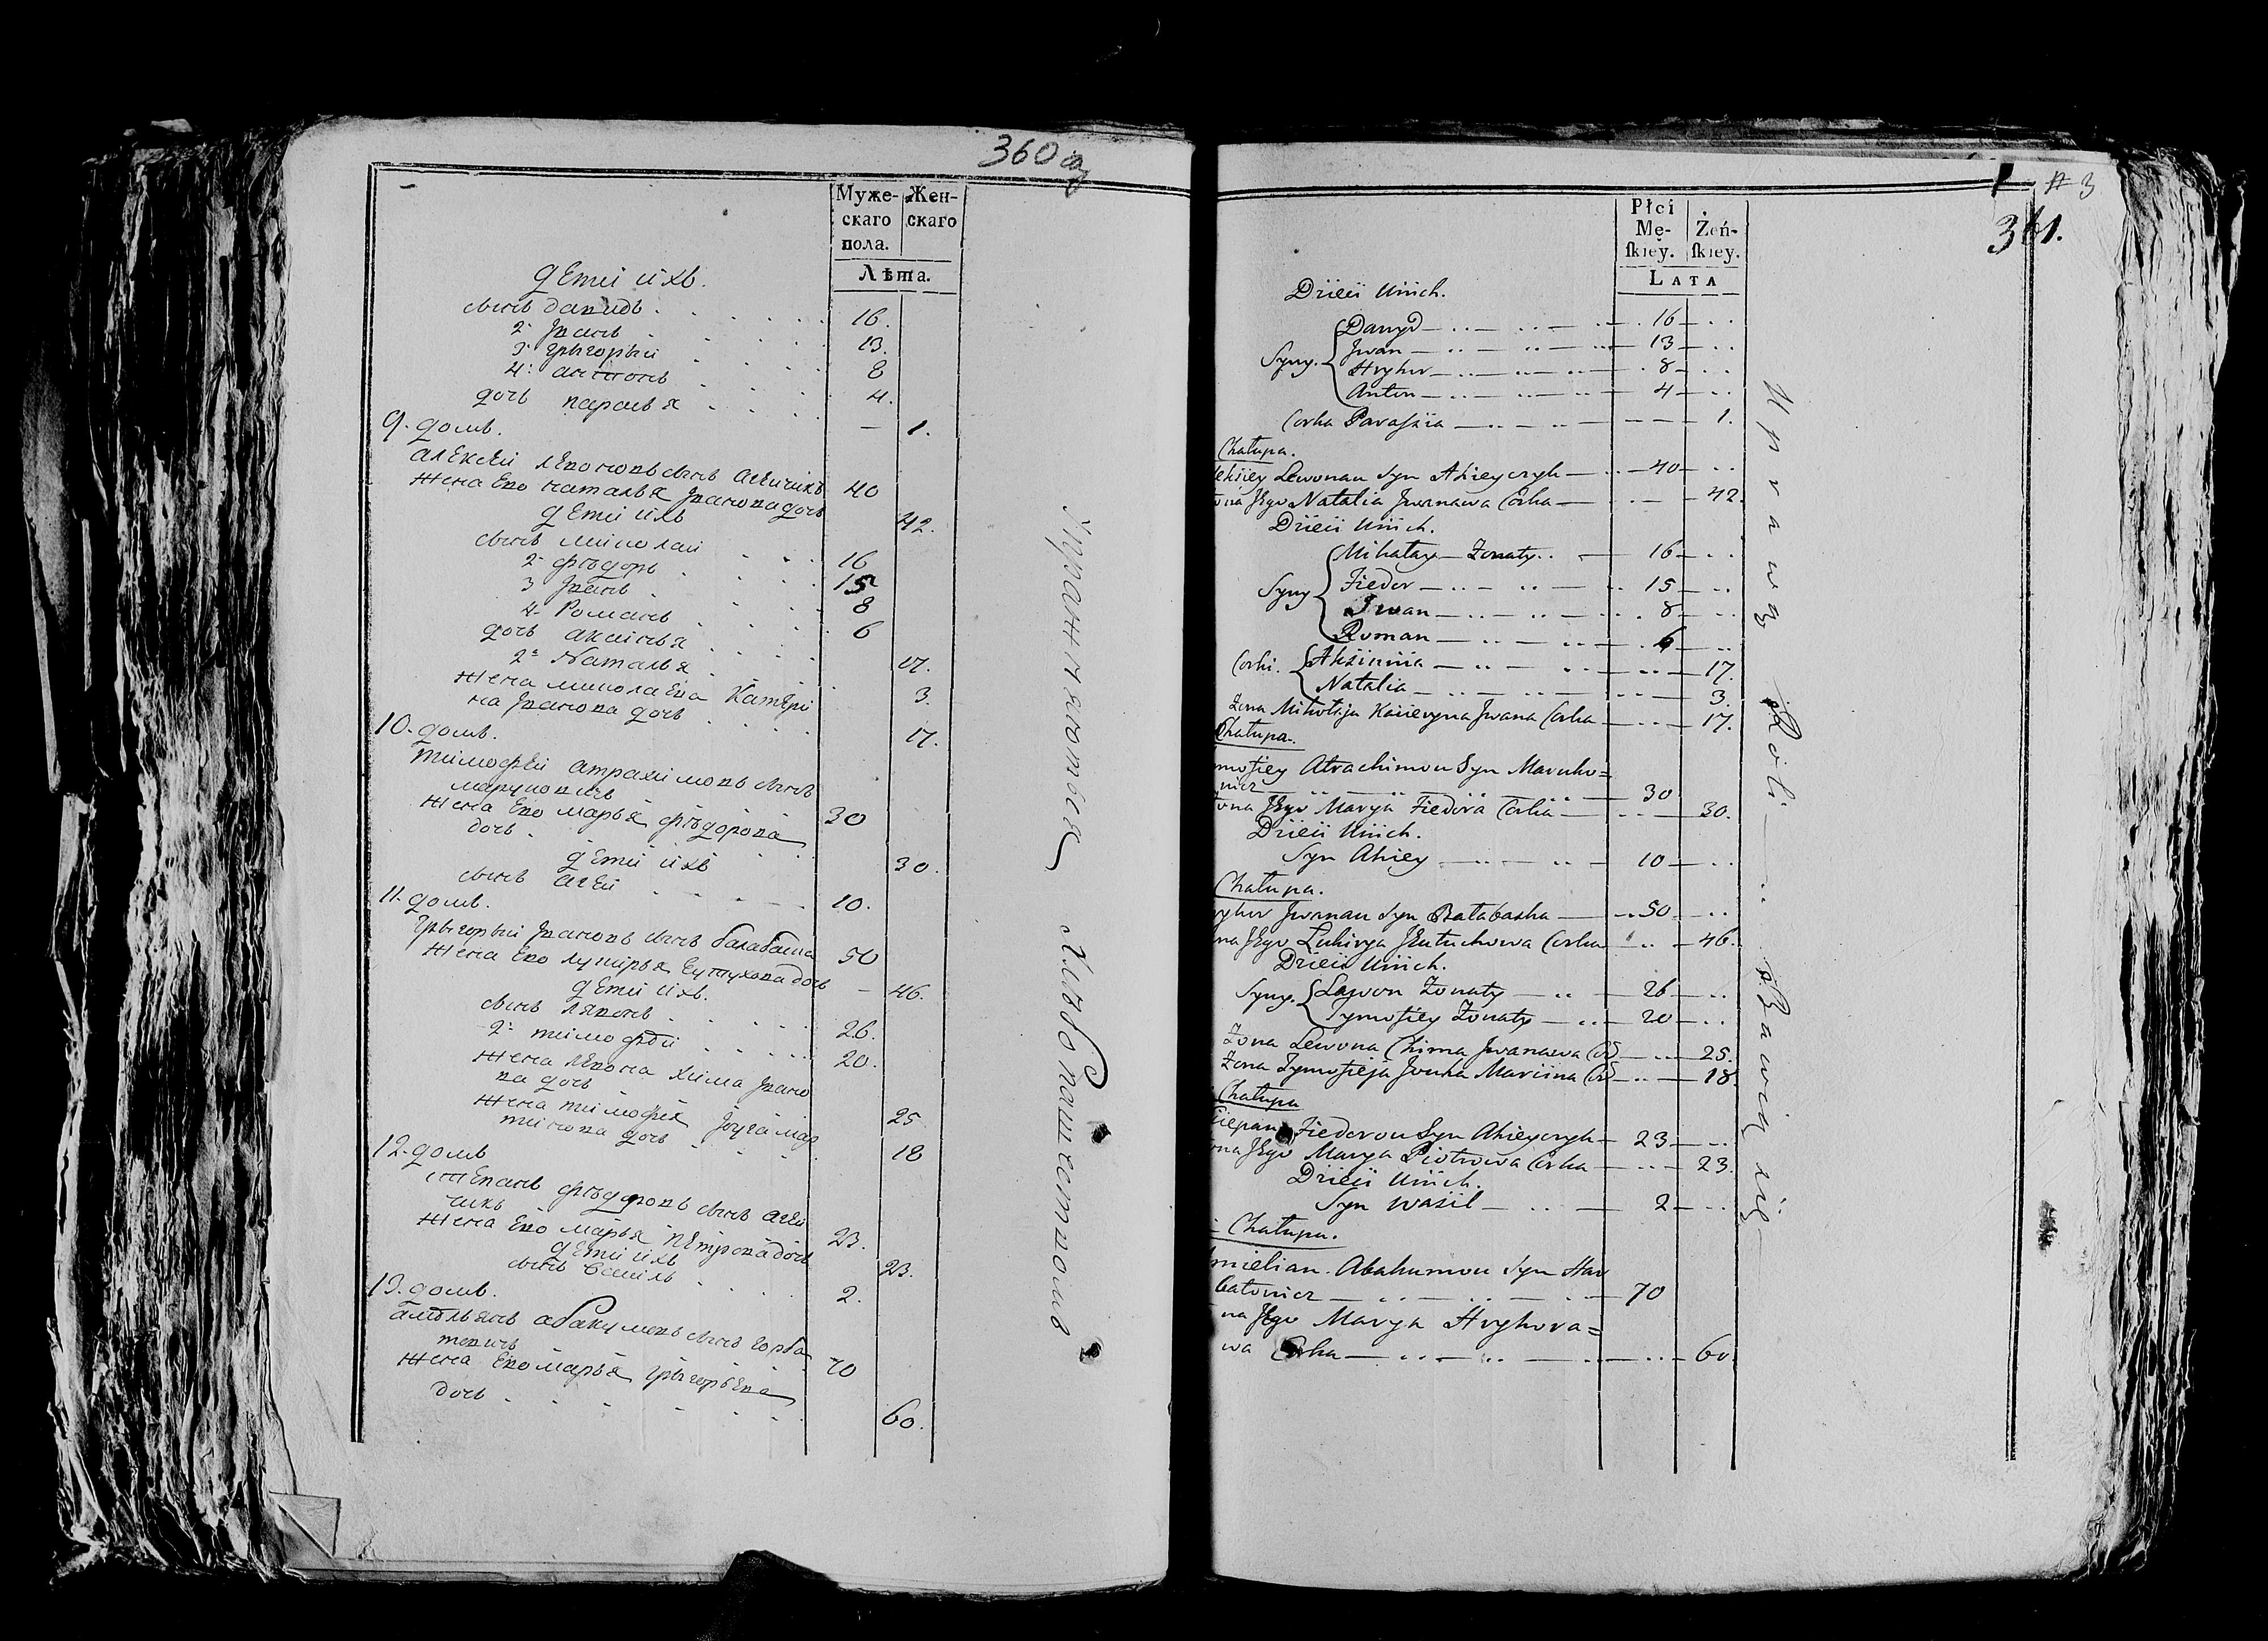 360 об
Муже- Жен-
скаго скаго
пола.
Лѣта.
дети ихъ.
сынъ давидъ . 16.
2- Иванъ 13.
3- григорѣй 8
4: антонъ 4.
дочь парасья — 1.
9. домъ.
алексей левоновъ сынъ агейчикъ 40
жена Его наталья Иванова дочь 42.
дети ихъ
сынъ миколай 16
2- фѣдоръ 15
3 Иванъ 8
4- Романъ 6
дочь аксинья 17.
2- Наталья 3.
жена миколаева Катери
на Иванова дочь 17.
10. домъ.
тимофей атрахимовъ сынъ
маруковичъ 30
жена Его марья фѣдорова
дочь 30.
дети ихъ
сынъ агей 10.
11. домъ.
григорѣй Ивановъ сынъ балабашка 50
жена Его лукирья Еутухова дочь — 46.
дети ихъ.
сынъ лявонъ 26.
2- тимофѣй 20.
жена левона хима Ивано
ва дочь 25
жена тимофея Июга мар
тинова дочь 18
12. домъ
степанъ фѣдоровъ сынъ агей
чикъ 23.
жена Его марья петрова дочь 23.
дети ихъ
сынъ Василь 2.
13. домъ.
амельянъ абакумовъ сынъ горба
товичъ 70
жена Его марья григорьева
дочь 60.
Упражняются хлебопашествомъ
№ 3
361.
Płci
Mę- Żeń-
ſkiey. ſkiey.
LATA
Dzieci Unich.
Syny. Danyd 16
Jwan 13
Hryhor 8
Anton 4
Corka Paraſzia 1.
Chałupa.
leksiey Lewonau Syn Ahieyczyk 40
ona Jego Natalia Jwanawa Corka 42.
Dzieci Unich.
Syny Mikałay Zonaty 16
Fiedor 15
Jwan 8
Roman 6
Corki. Aksinnia 17.
Natalia 3.
Zona Mikołaja Kacieryna Jwana Corka 17.
Chatupa.
mofiey Atrachimou Syn Maruko=
wicz 30
ona Jego Marya Fiedora Corka 30.
Dzieci Unich.
Syn Ahiey 10
Chatupa.
yhor Jwanau Syn Bałabaska 50
na Jego Lukirya Jeutuchowa Corka 46.
Dzieci Unich.
Syny. Lawon Zonaty 26
Tymofiey Zonaty 20
Zona Lewona Chima Jwanawa Cor 25.
Zona Tymofieja Jouha Marcina Cor 18.
Chatupa
ciepan Fiedorou Syn Ahieyczyk 23
na Jego Marya Piotrowa Corka 23.
Dzieci Unich.
Syn Wasil 2
Chatupa.
mielian Abakumou Syn Har
batowicz 70
na Jego Marya Hryhora=
wa Corka 60.
Uprawą Roli Bawią się